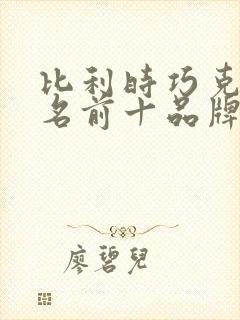 比利時巧克
名前十品牌
廖碧兒